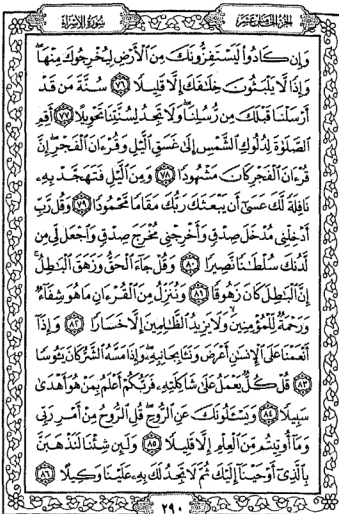 سُورَةُ الإِسْرَاءِ
الجُزْءُ الخَامِسَ عَشَرَ
وَإِن كَادُواْ لَيَسْتَفِزُّونَكَ مِنَ ٱلْأَرْضِ لِيُخْرِجُوكَ مِنْهَا ۖ
وَإِذًا لَّا يَلْبَثُونَ خِلَٰفَكَ إِلَّا قَلِيلًا ٧٦ سُنَّةَ مَن قَدْ
أَرْسَلْنَا قَبْلَكَ مِن رُّسُلِنَا ۖ وَلَا تَجِدُ لِسُنَّتِنَا تَحْوِيلًا ٧٧ أَقِمِ
ٱلصَّلَوٰةَ لِدُلُوكِ ٱلشَّمْسِ إِلَىٰ غَسَقِ ٱلَّيْلِ وَقُرْءَانَ ٱلْفَجْرِ ۖ إِنَّ
قُرْءَانَ ٱلْفَجْرِ كَانَ مَشْهُودًا ٧٨ وَمِنَ ٱلَّيْلِ فَتَهَجَّدْ بِهِۦ
نَافِلَةً لَّكَ عَسَىٰٓ أَن يَبْعَثَكَ رَبُّكَ مَقَامًا مَّحْمُودًا ٧٩ وَقُل رَّبِّ
أَدْخِلْنِى مُدْخَلَ صِدْقٍ وَأَخْرِجْنِى مُخْرَجَ صِدْقٍ وَٱجْعَل لِّى مِن
لَّدُنكَ سُلْطَٰنًا نَّصِيرًا ٨٠ وَقُلْ جَآءَ ٱلْحَقُّ وَزَهَقَ ٱلْبَٰطِلُ ۚ
إِنَّ ٱلْبَٰطِلَ كَانَ زَهُوقًا ٨١ وَنُنَزِّلُ مِنَ ٱلْقُرْءَانِ مَا هُوَ شِفَآءٌ
وَرَحْمَةٌ لِّلْمُؤْمِنِينَ ۙ وَلَا يَزِيدُ ٱلظَّٰلِمِينَ إِلَّا خَسَارًا ٨٢ وَإِذَآ
أَنْعَمْنَا عَلَى ٱلْإِنسَٰنِ أَعْرَضَ وَنَـَٔا بِجَانِبِهِۦ ۖ وَإِذَا مَسَّهُ ٱلشَّرُّ كَانَ يَـُٔوسًا
٨٣ قُلْ كُلٌّ يَعْمَلُ عَلَىٰ شَاكِلَتِهِۦ فَرَبُّكُمْ أَعْلَمُ بِمَنْ هُوَ أَهْدَىٰ
سَبِيلًا ٨٤ وَيَسْـَٔلُونَكَ عَنِ ٱلرُّوحِ ۖ قُلِ ٱلرُّوحُ مِنْ أَمْرِ رَبِّى
وَمَآ أُوتِيتُم مِّنَ ٱلْعِلْمِ إِلَّا قَلِيلًا ٨٥ وَلَئِن شِئْنَا لَنَذْهَبَنَّ
بِٱلَّذِىٓ أَوْحَيْنَآ إِلَيْكَ ثُمَّ لَا تَجِدُ لَكَ بِهِۦ عَلَيْنَا وَكِيلًا ٨٦
٢٩٠